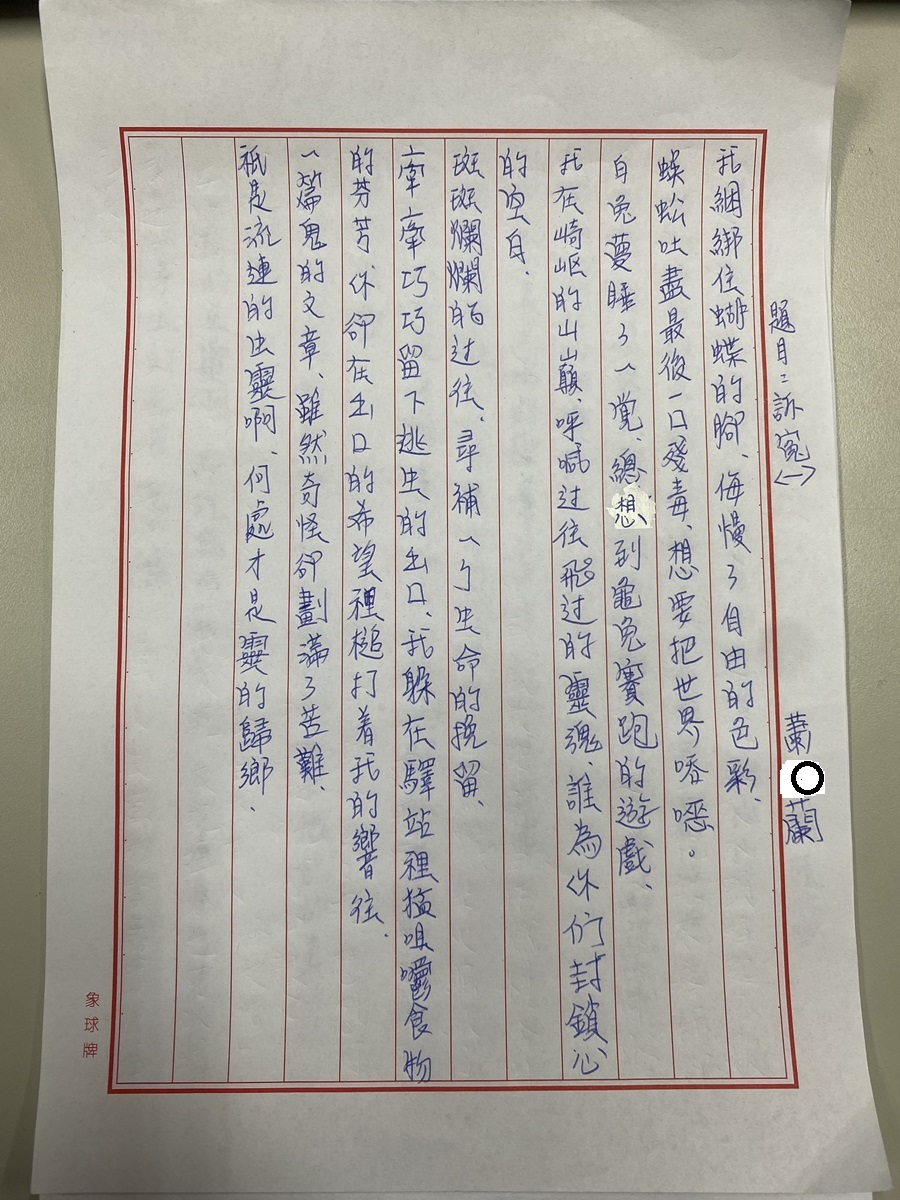 題目：訴冤<一>
蕭 蘭
我綑綁住蝴蝶的腳、侮慢了自由的色彩、
蜈蚣吐盡最後一口殘毒、想要把世界吞噬。
白兔蔓睡了一覺、總想到龜兔賽跑的遊戲、
我在崎岖的山巔、呼喊过往飛过的靈魂、誰為你们封鎖心
的空白、
斑斑斕斕的过往、尋補一个生命的挽留、
牽牽巧巧留下逃生的出口、我躲在驛站裡猛咀嚼食物
的芬芳你卻在出口的希望裡搥打着我的嚮往．
一篇鬼的文章、雖然奇怪卻劃滿了苦難、
祇是流連的虫靈啊、何處才是靈的歸鄉．
象球牌